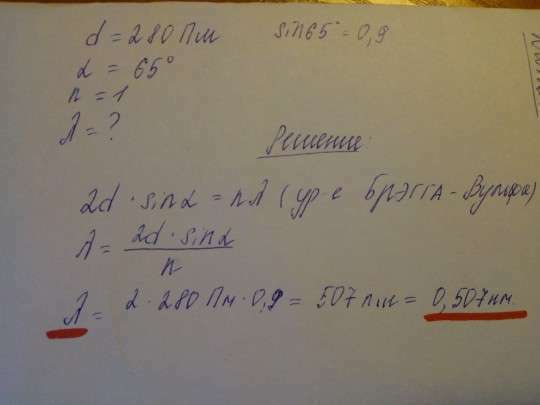 d = 280 Пм sin65° = 0,9
α = 65°
n = 1
λ = ?
Решение.
2d · sinα = nλ (ур-е Брэгга-Вульфа)
λ = 2d · sinα / n
λ = 2 · 280 Пм · 0,9 = 507 пм = 0,507нм